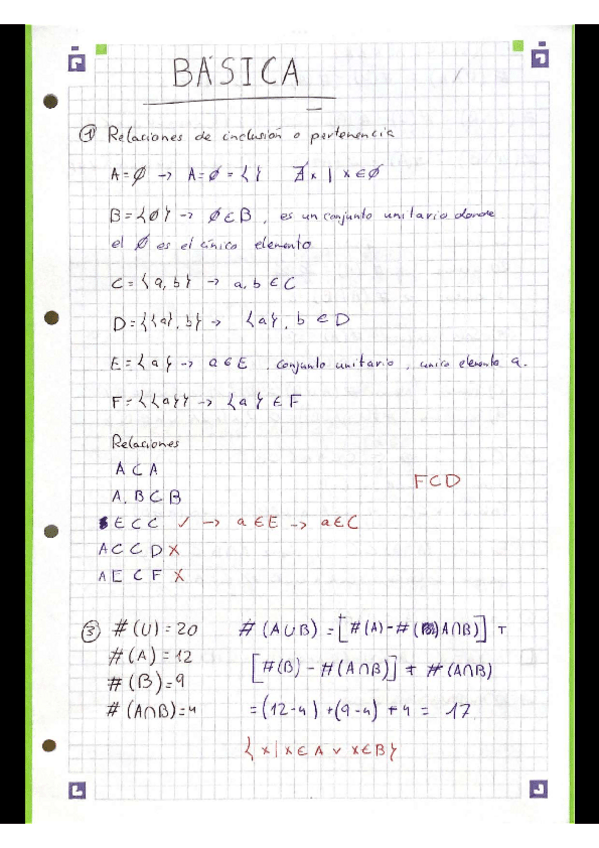 BÁSICA
① Relaciones de inclusión o pertenencia
A=∅ → A=∅={} ∄x | x∈∅
B={∅} → ∅∈B, es un conjunto unitario donde
el ∅ es el único elemento
C={a,b} → a,b∈C
D={{a},b} → {a},b∈D
E={a} → a∈E, conjunto unitario, unico elemento a.
F={{a}} → {a}∈F
Relaciones
A⊂A
A,B⊂B
F⊂D
E⊂C ✓ → a∈E → a∈C
A⊂C D X
AE⊂F X
③ #(U)=20
#(A)=12
#(B)=9
#(A∩B)=4
#(A∪B)=[#(A)-#(A∩B)]+
[#(B)-#(A∩B)]+#(A∩B)
=(12-4)+(9-4)+4=17
{x|x∈A ∨ x∈B}